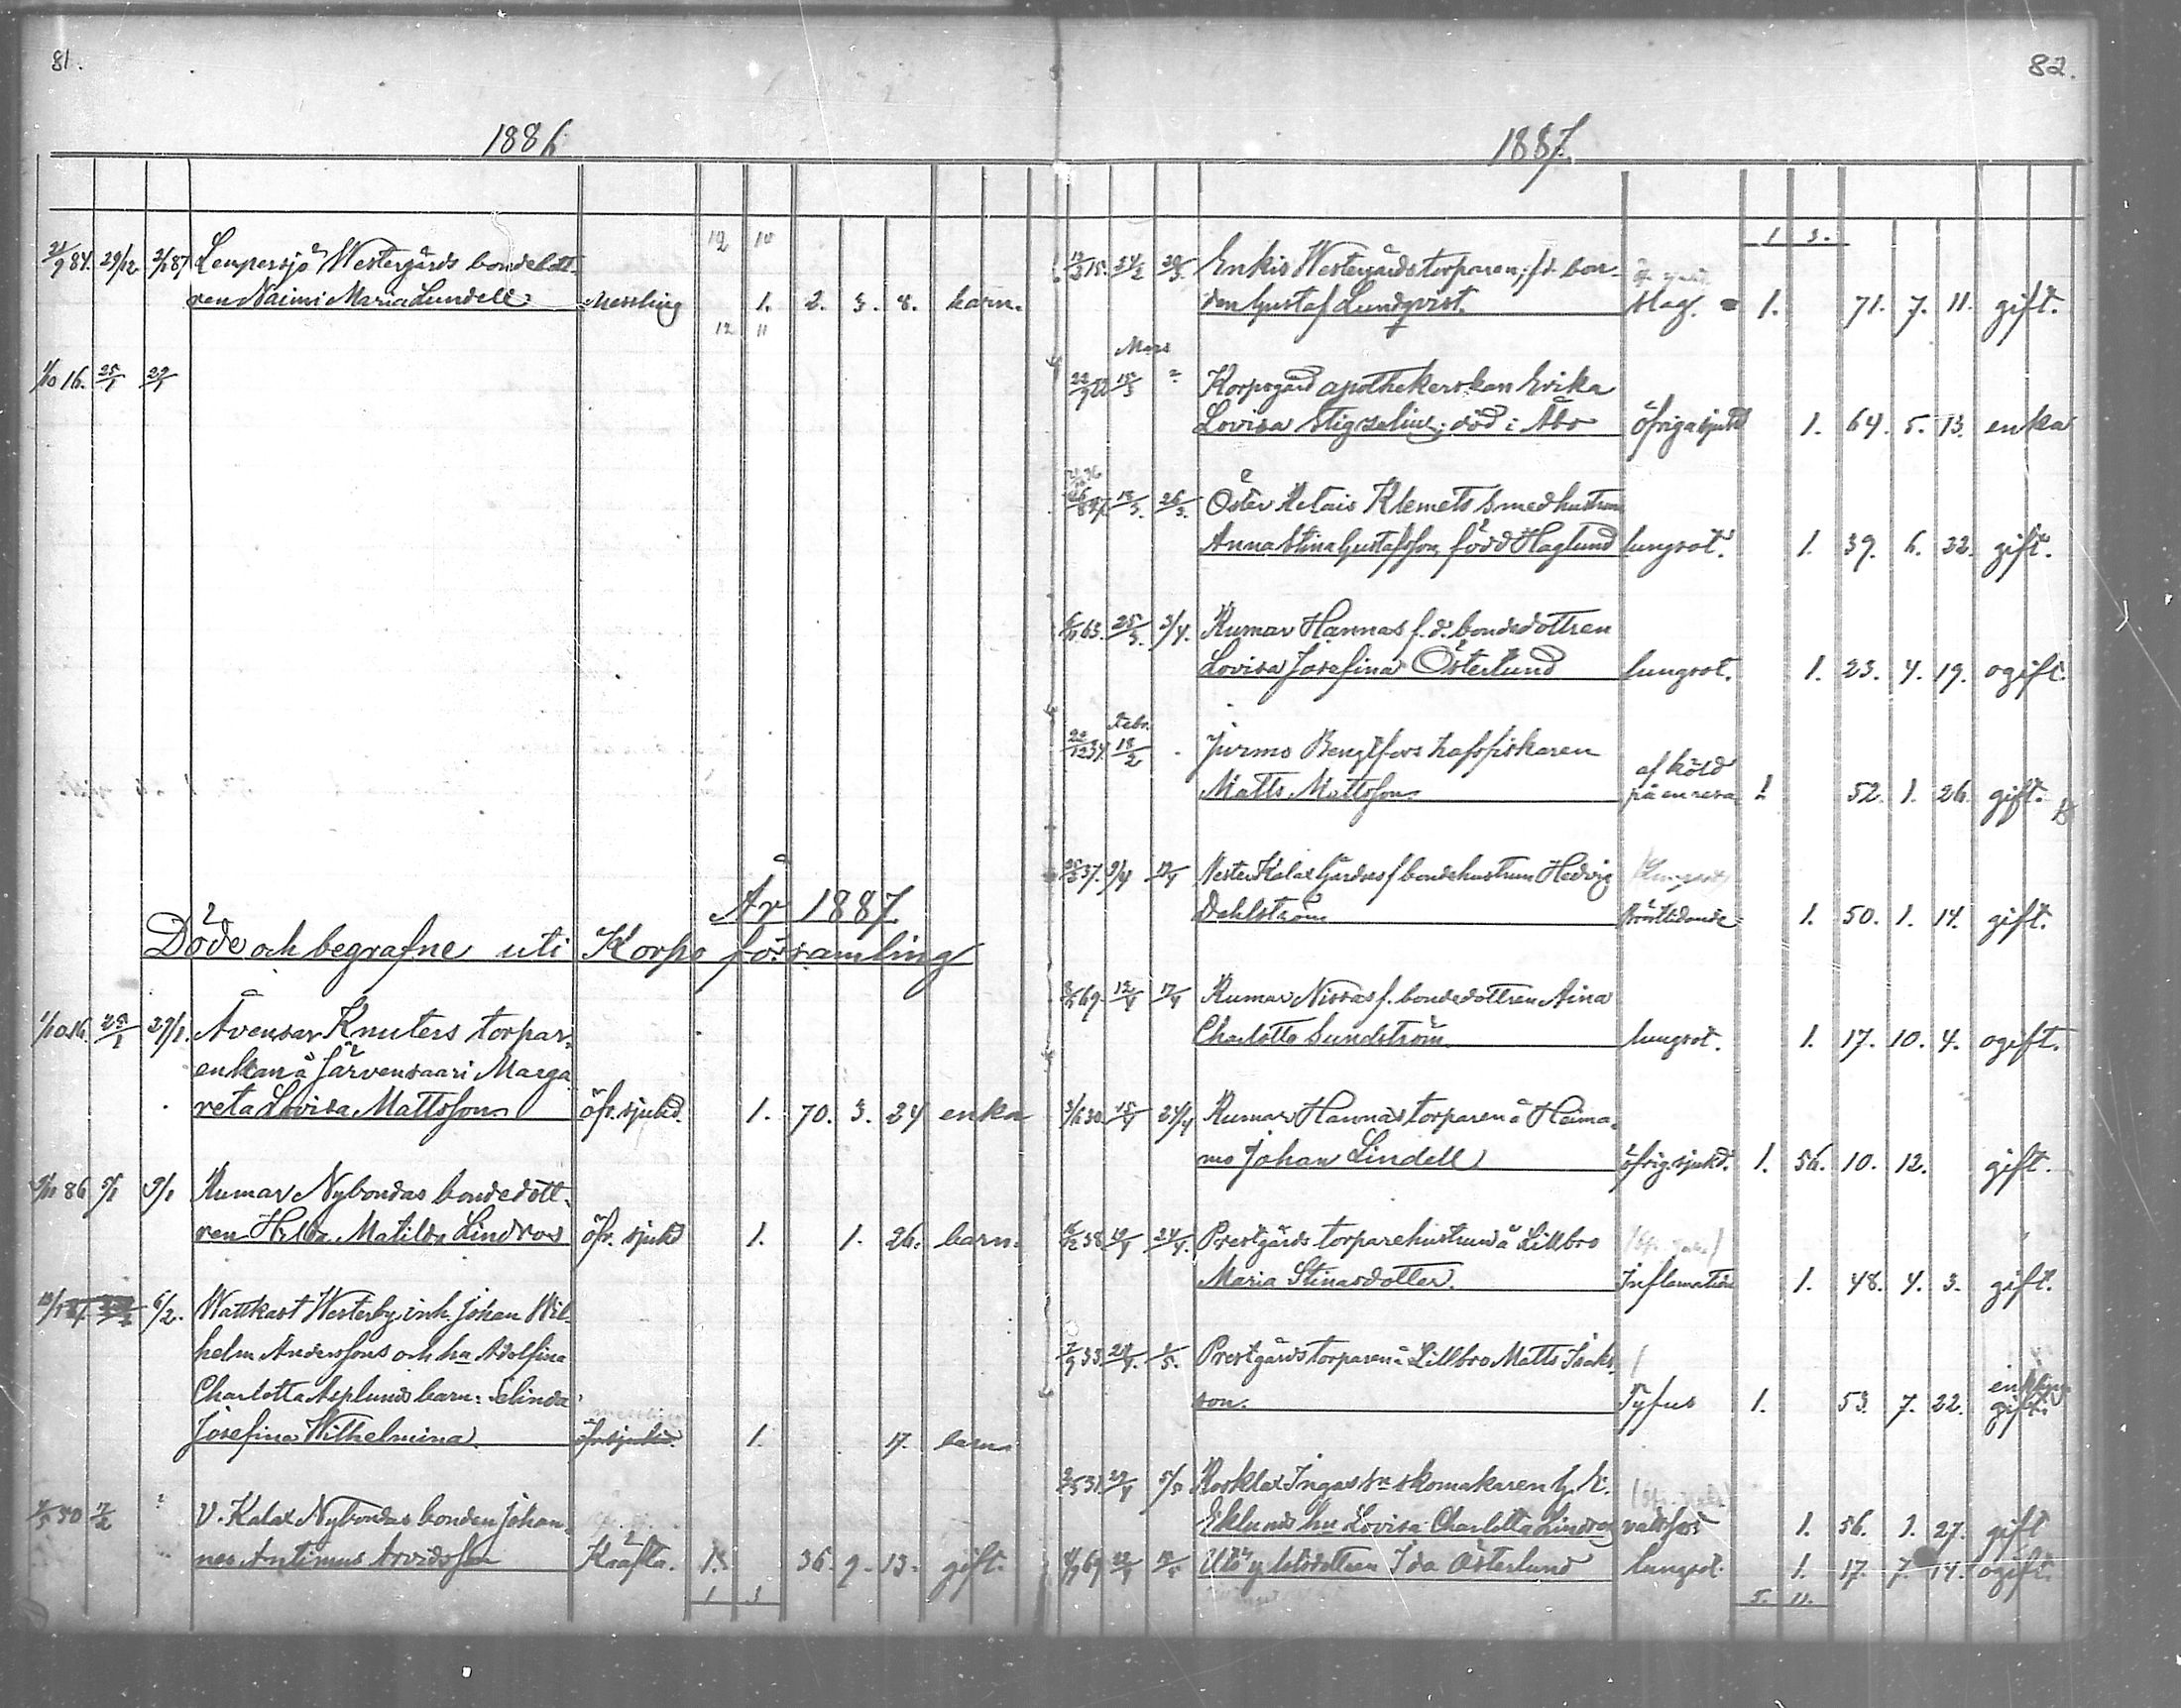 81.
1886
21/9 84. 29/12 2/1 87 Lempersjö Westergårds bondedott-
ren Naimi Maria Lundell Messling 1. 2. 3. 8. barn.
12 11
1/10 16. 25/1 29/1
År 1887.
Döde och begrafne uti Korpo församling
1/10 16. 25/1 29/1. Åvensar Knuters torpar-
enkan å Järvensaari Marga-
reta Lovisa Mattsson öfr. sjukd. 1. 70. 3. 24 enka
86 9/1 Rumar Nybondas bondedott-
ren Hilda Matilda Lindroos öfr. sjukd 1. 1. 26. barn.
6/2. Wattkast Westerby inh. Johan Wil-
helm Anderssons och hu Adolfina
Charlotta Asplunds barn: Selinda
Josefina Wilhelmina. öfr. sjukd. 1. 17. barn
50 V. Kalax Nybondas bonden Johan-
nes Antinus Arvidsson Kräfta. 1. 36. 9. 13. gift.
1 3
82.
1887.
1 3.
15. 24/2 Enkis Westergårds torparen, f.d. bon-
den Gustaf Lundqvist. slag. 1. 71. 7. 11. gift.
Mars
22/9 22 15/3 Korpogård apothekerskan Erika
Lovisa Stigzelius; död i Åbo öfriga sjukd 1. 64. 5. 13. enka
26/3. Öster Retais Klemets smedhustrun
Anna Stina Gustafsson, född Haglund lungsot. 1. 39. 6. 22. gift.
6/11 63. 25/3. 3/4. Rumar Hannas f.d. bondedottren
Lovisa Josefina Österlund lungsot. 1. 23. 4. 19. ogift.
Febr.
22/12 34. 18/2 Jurmo Bengtfers hafsfiskaren
Matts Mattsson af köld
på en resa 1. 52. 1. 26. gift.
37. 9/4 Wester Kalax Gårdses f bondehustrun Hedvig
Dahlström bröstlidande 1. 50. 1. 14. gift.
69. 12/4 17/4 Rumar Nissas f. bondedottren Aina
Charlotta Sundström lungsot. 1. 17. 10. 4. ogift.
3/6 30. 15/4 24/4 Rumar Hannas torparen å Heima-
mo Johan Lindell öfrig. sjukd. 1. 56. 10. 12. gift.
38. 19/4 24/4. Prestgårds torparehustrun å Lillbro
Maria Stinasdotter. Inflamation 1. 48. 4. 3. gift.
7/9 33. 29/4. 1/5. Prestgårds torparen å Lillbro Matts Isaks-
son. Tyfus 1. 53. 7. 22. gift.
2/3 31. 29/4 5/5 Rosklax Ingas f.d. skomakaren G. E.
Eklunds hu Lovisa Charlotta Lindroos vattsot 1. 56. 1. 27. gift
69 Utö lotsdottren Ida Österlund lungsot. 1. 17. 7. 14. ogift.
5. 11.